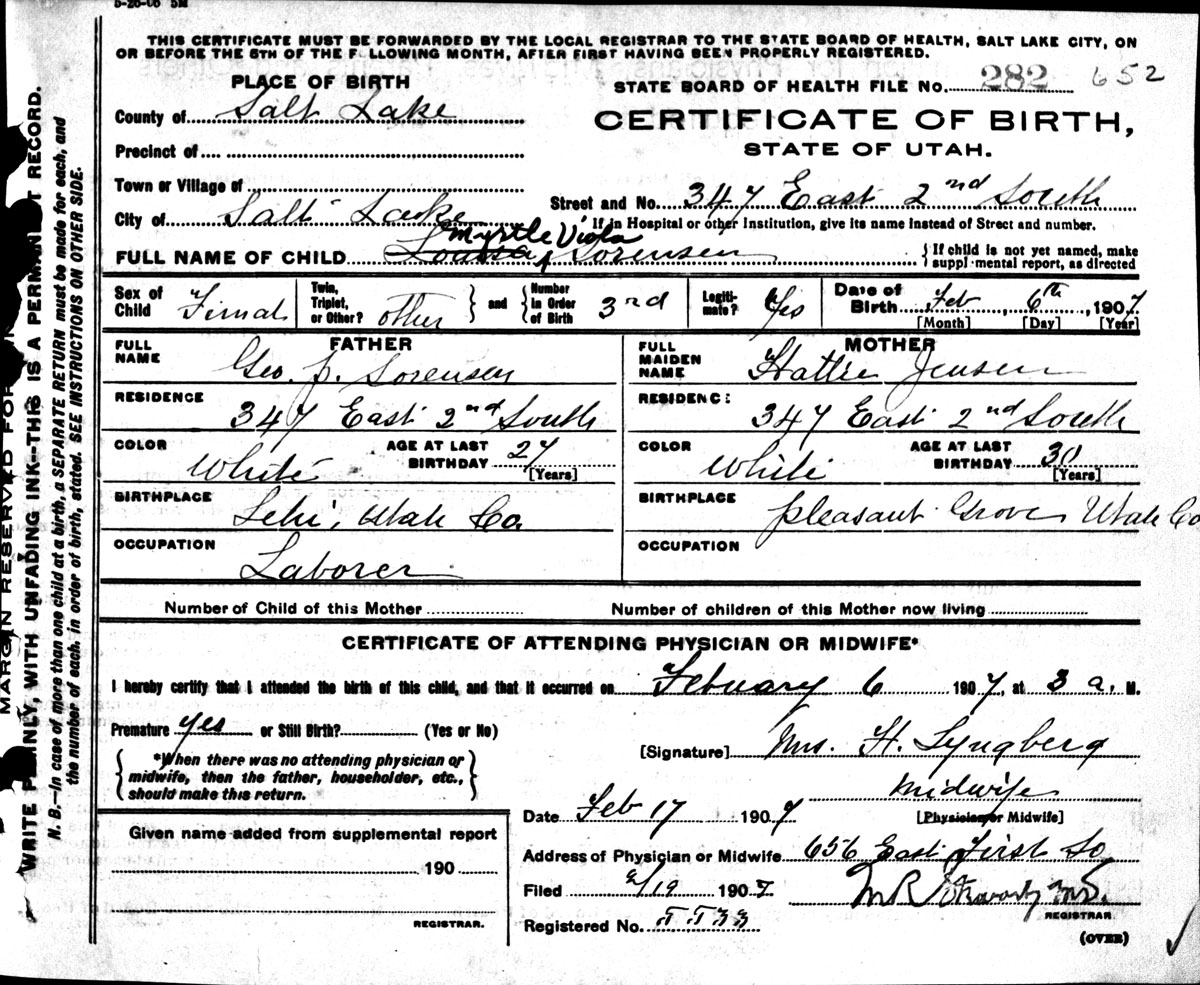 5-26-06 5M
THIS CERTIFICATE MUST BE FORWARDED BY THE LOCAL REGISTRAR TO THE STATE BOARD OF HEALTH, SALT LAKE CITY, ON
OR BEFORE THE 5TH OF THE F LLOWING MONTH, AFTER FIRST HAVING BEEN PROPERLY REGISTERED.
PLACE OF BIRTH
STATE BOARD OF HEALTH FILE NO. 282 652
County of Salt Lake
CERTIFICATE OF BIRTH,
STATE OF UTAH.
Precinct of
Town or Village of
Street and No. 347 East 2nd South
City of Salt Lake
If in Hospital or other Institution, give its name instead of Street and number.
Myrtle Viola
FULL NAME OF CHILD Sorensen
{If child is not yet named, make
suppl mental report, as directed
Sex of Child Fimal
Twin, Triplet, or Other? other } and { Number in Order of Birth 3rd
Legiti-mate? Yes
Date of Birth Feb 6th, 1907
[Month] [Day] [Year]
FATHER
FULL NAME Geo. J. Sorensen
RESIDENCE 347 East 2nd South
COLOR White
AGE AT LAST BIRTHDAY 27 [Years]
BIRTHPLACE Lehi, Utah Co
OCCUPATION Laborer
MOTHER
FULL MAIDEN NAME Hattie Jensen
RESIDENC: 347 East 2nd South
COLOR White
AGE AT LAST BIRTHDAY 30 [Years]
BIRTHPLACE Pleasant Grove Utah Co
OCCUPATION
Number of Child of this Mother
Number of children of this Mother now living
CERTIFICATE OF ATTENDING PHYSICIAN OR MIDWIFE*
I hereby certify that I attended the birth of this child, and that it occurred on Febuary 6 1907, at 3 a. M.
Premature yes or Still Birth? (Yes or No)
[Signature] Mrs. H. Lyngberg
{*When there was no attending physician or
midwife, then the father, householder, etc.,
should make this return.}
Midwife
[Physician or Midwife]
Date Feb 17 1907
Given name added from supplemental report
190
REGISTRAR.
Address of Physician or Midwife 656 East First So
Filed 2/19 1907
REGISTRAR
Registered No.
(OVER)
MARGIN RESERVED FOR
WRITE PLAINLY, WITH UNFADING INK--THIS IS A PERMAN T RECORD.
N. B.—In case of more than one child at a birth, a SEPARATE RETURN must be made for each, and
the number of each, in order of birth, stated. SEE INSTRUCTIONS ON OTHER SIDE.